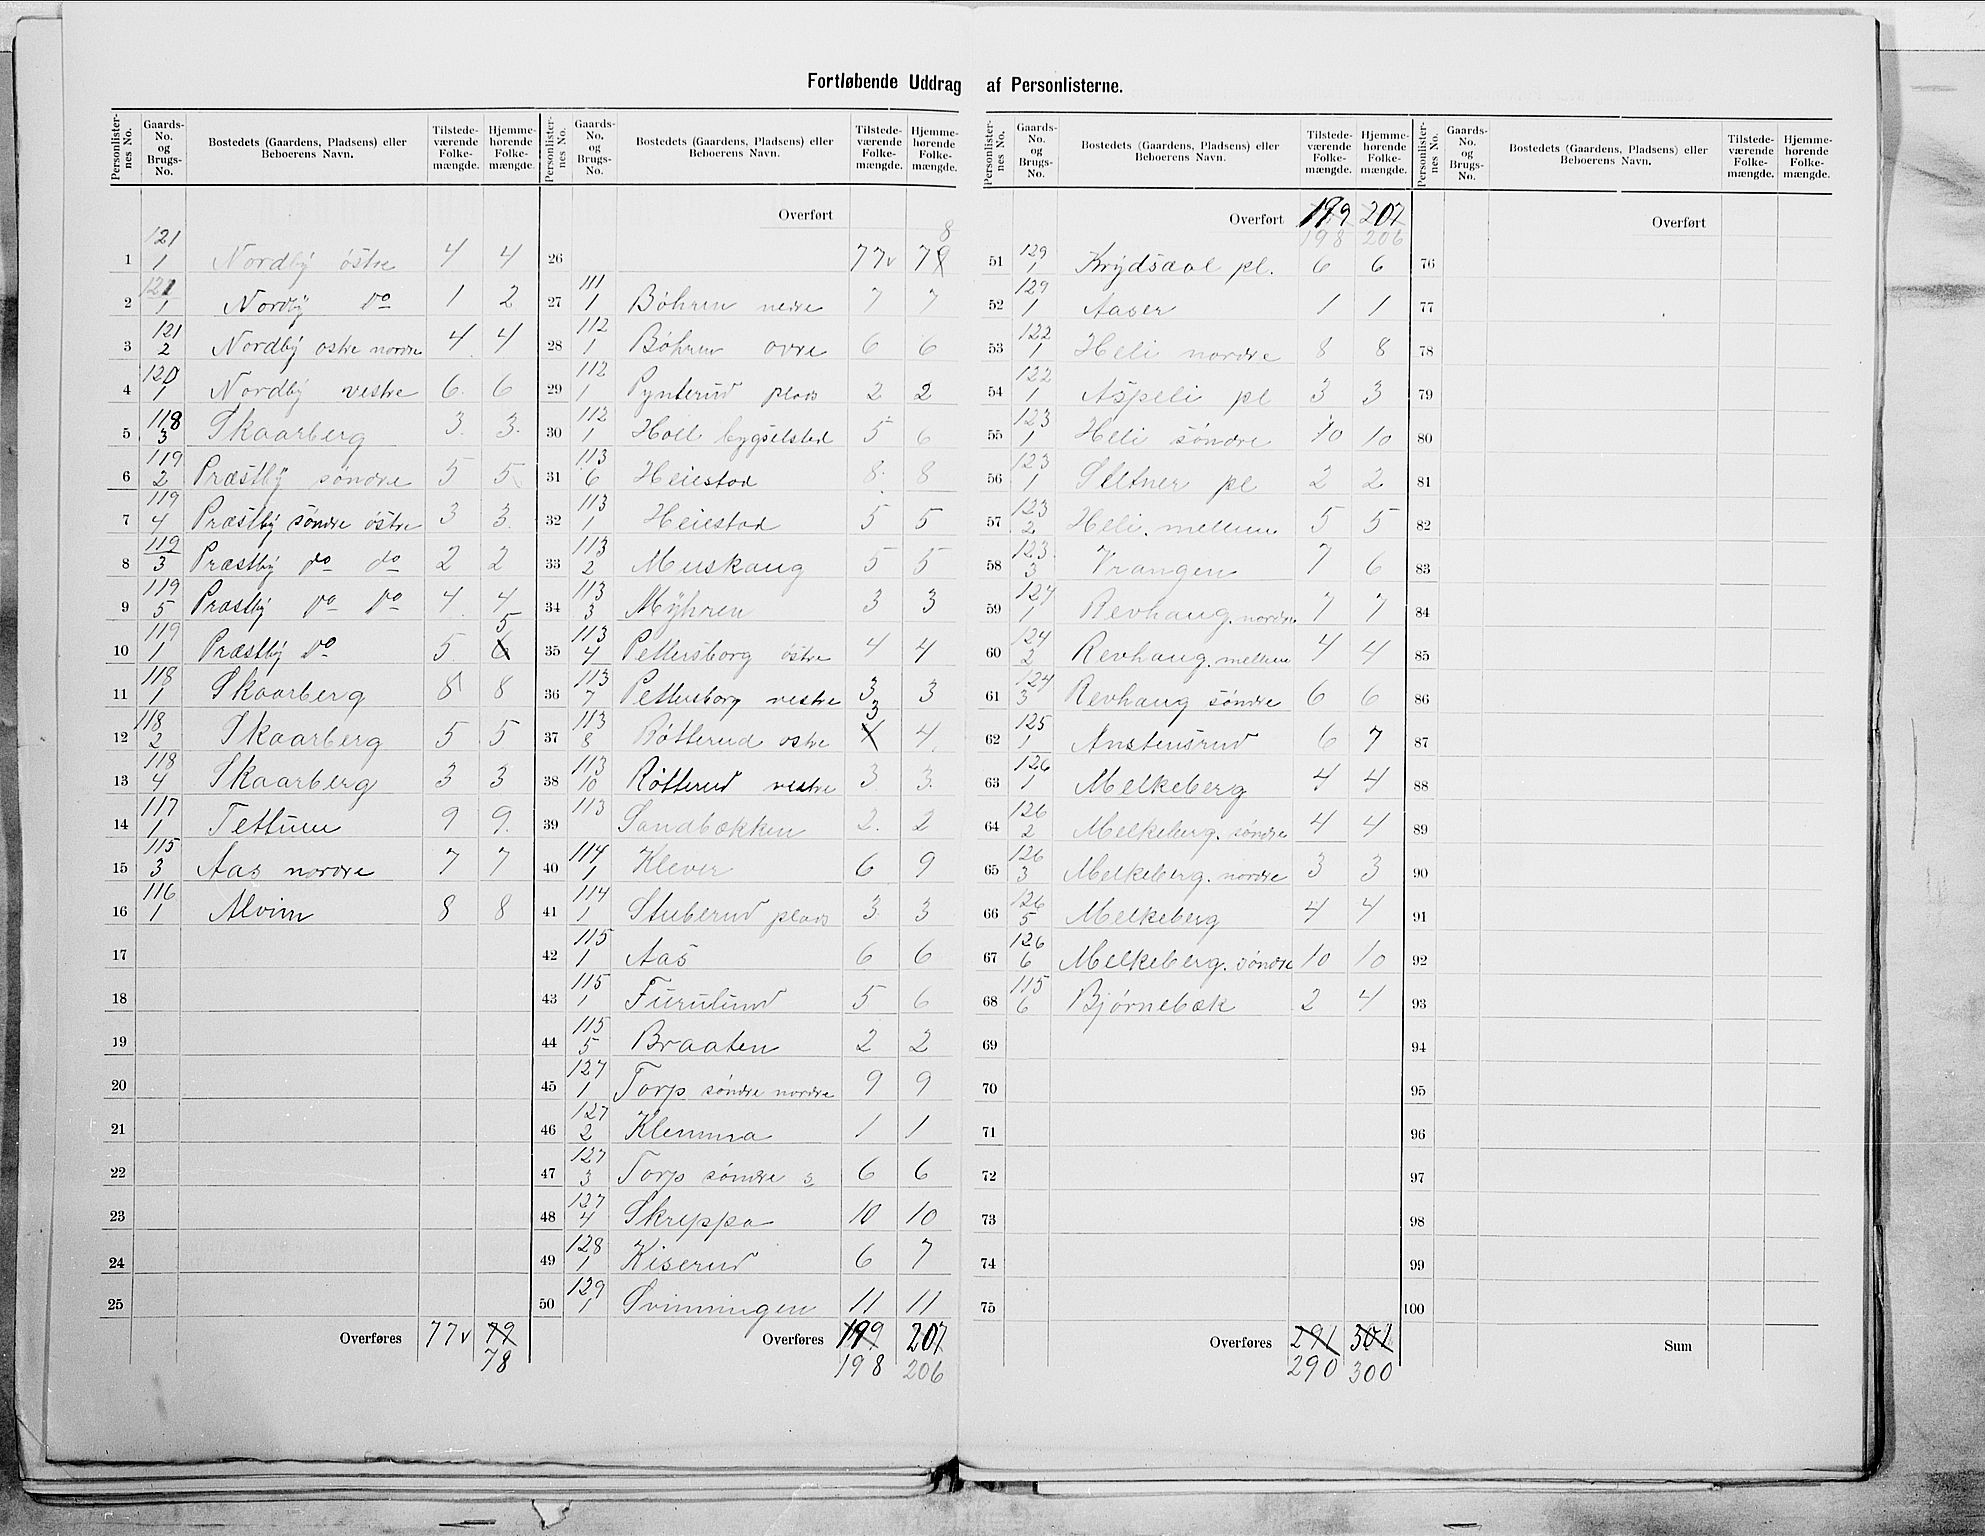 Fortløbende Uddrag af Personlisterne.
Personlisternes No. | Gaards-No. og Brugs-No. | Bostedets (Gaardens, Pladsens) eller Beboerens Navn. | Tilstedeværende Folkemængde. | Hjemmehørende Folkemængde.
1 121/1 Nordby østre 4 4
2 121/1 Nordby do 1 2
3 121/2 Nordby østre nordre 4 4
4 120/1 Nordby vestre 6 6
5 118/3 Skaarberg 3 3
6 119/2 Præstby søndre 5 5
7 119/4 Præstby søndre østre 3 3
8 119/3 Præstby do do 2 2
9 119/5 Præstby do do 4 4
10 119/1 Præstby do 5 6 5
11 118/1 Skaarberg 8 8
12 118/2 Skaarberg 5 5
13 118/4 Skaarberg 3 3
14 117/1 Tettum 9 9
15 115/3 Aas nordre 7 7
16 116/1 Alvim 8 8
17
18
19
20
21
22
23
24
25
Overføres 77 v 79
78
Personlisternes No. | Gaards-No. og Brugs-No. | Bostedets (Gaardens, Pladsens) eller Beboerens Navn. | Tilstedeværende Folkemængde. | Hjemmehørende Folkemængde.
Overført
26 77 v 79 8
27 111/1 Bøhren nedre 7 7
28 112/1 Bøhren øvre 6 6
29 112/1 Pynterud plads 2 2
30 112/1 Holl bygselsted 5 6
31 113/6 Heiestad 8 8
32 113/1 Heiestad 5 5
33 113/2 Muskaug 5 5
34 113/3 Myhren 3 3
35 113/4 Pettersborg østre 4 4
36 113/7 Pettersborg vestre 3 3
37 113/8 Røtterud østre 4 3 4
38 113/10 Røtterud vestre 3 3
39 113 Sandbækken 2 2
40 114/1 Klever 6 9
41 114/1 Stuberud plads 3 3
42 115/1 Aas 6 6
43 115/1 Furulund 5 6
44 115/5 Braaten 2 2
45 127/1 Torp søndre nordre 9 9
46 127/2 Klemma 1 1
47 127/3 Torp søndre s 6 6
48 127/4 Skreppa 10 10
49 128/1 Kiserud 6 7
50 129/1 Svinningen 11 11
Overføres 199 207
198 206
Personlisternes No. | Gaards-No. og Brugs-No. | Bostedets (Gaardens, Pladsens) eller Beboerens Navn. | Tilstedeværende Folkemængde. | Hjemmehørende Folkemængde.
Overført 199 207
198 206
51 129/1 Krydsaal pl. 6 6
52 129/1 Aaser 1 1
53 122/1 Heli nordre 8 8
54 122/1 Aspeli pl 3 3
55 123/1 Heli søndre 10 10
56 123/1 Seltner pl 2 2
57 123/2 Heli. mellum 5 5
58 123/3 Vrangen 7 6
59 124/1 Revhaug. nordre 7 7
60 124/2 Revhaug. mellum 4 4
61 124/3 Revhaug søndre 6 6
62 125/1 Anstensrud 6 7
63 126/1 Melkeberg 4 4
64 126/2 Melkeberg. søndre 4 4
65 126/3 Melkeberg. nordre 3 3
66 126/5 Melkeberg 4 4
67 126/6 Melkeberg. søndre 10 10
68 115/6 Bjørnebæk 2 4
69
70
71
72
73
74
75
Overføres 291 301
290 300
Personlisternes No. | Gaards-No. og Brugs-No. | Bostedets (Gaardens, Pladsens) eller Beboerens Navn. | Tilstedeværende Folkemængde. | Hjemmehørende Folkemængde.
Overført
76
77
78
79
80
81
82
83
84
85
86
87
88
89
90
91
92
93
94
95
96
97
98
99
100
Sum